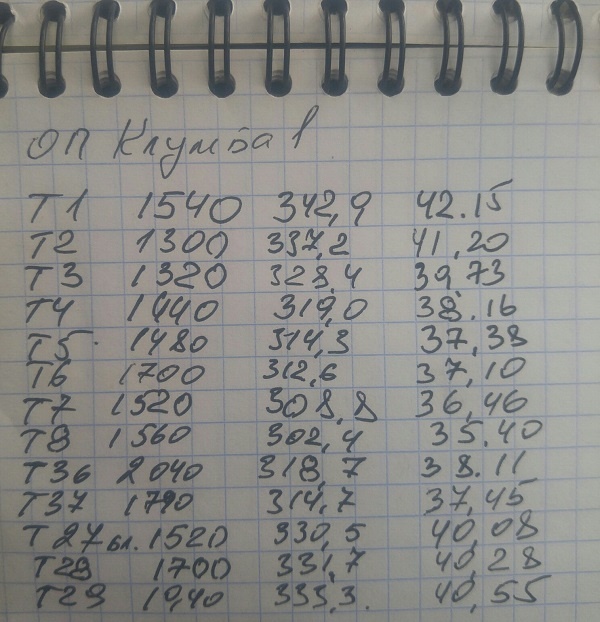 ОП Клумба 1
Т1 1540 342,9 42.15
Т2 1300 337,2 41,20
Т3 1320 328,4 39,73
Т4 1440 319,0 38.16
Т5 1480 314,3 37,38
Т6 1700 312,6 37,10
Т7 1520 308,8 36,46
Т8 1560 302,4 35.40
Т36 2040 318,7 38.11
Т37 1790 314,7 37,45
Т27 бл. 1520 330,5 40,08
Т28 1700 331,7 40,28
Т29 19,40 333,3. 40,55